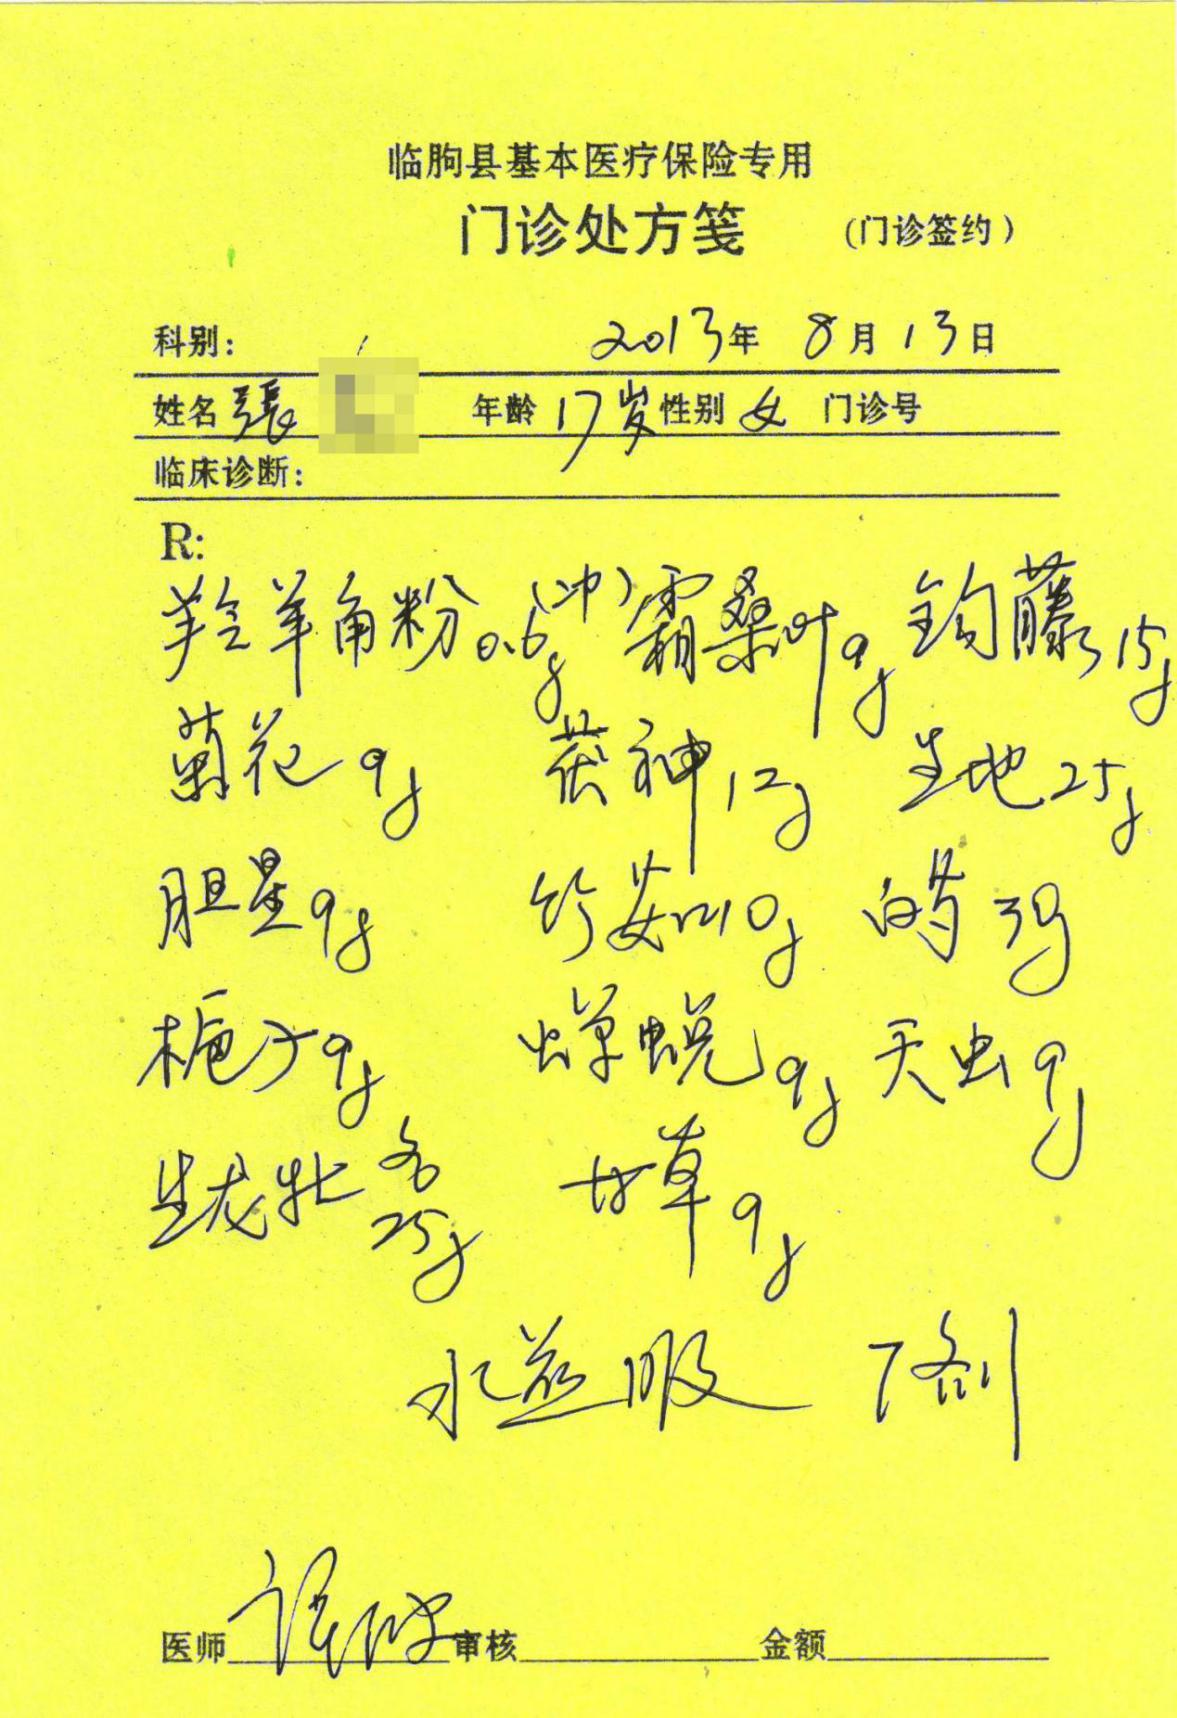 临朐县基本医疗保险专用
门诊处方笺 (门诊签约)
科别: 2013年 8月13日
姓名 張 年龄 17岁 性别 女 门诊号
临床诊断:
R:
羚羊角粉0.6g(冲) 霜桑叶9g 钩藤15g
菊花9g 茯神12g 生地25g
胆星9g 竹茹10g 白芍30g
栀子9g 蝉蜕9g 天虫9g
生龙牡各25g 甘草9g
水煎服 7剂
医师 审核 金额